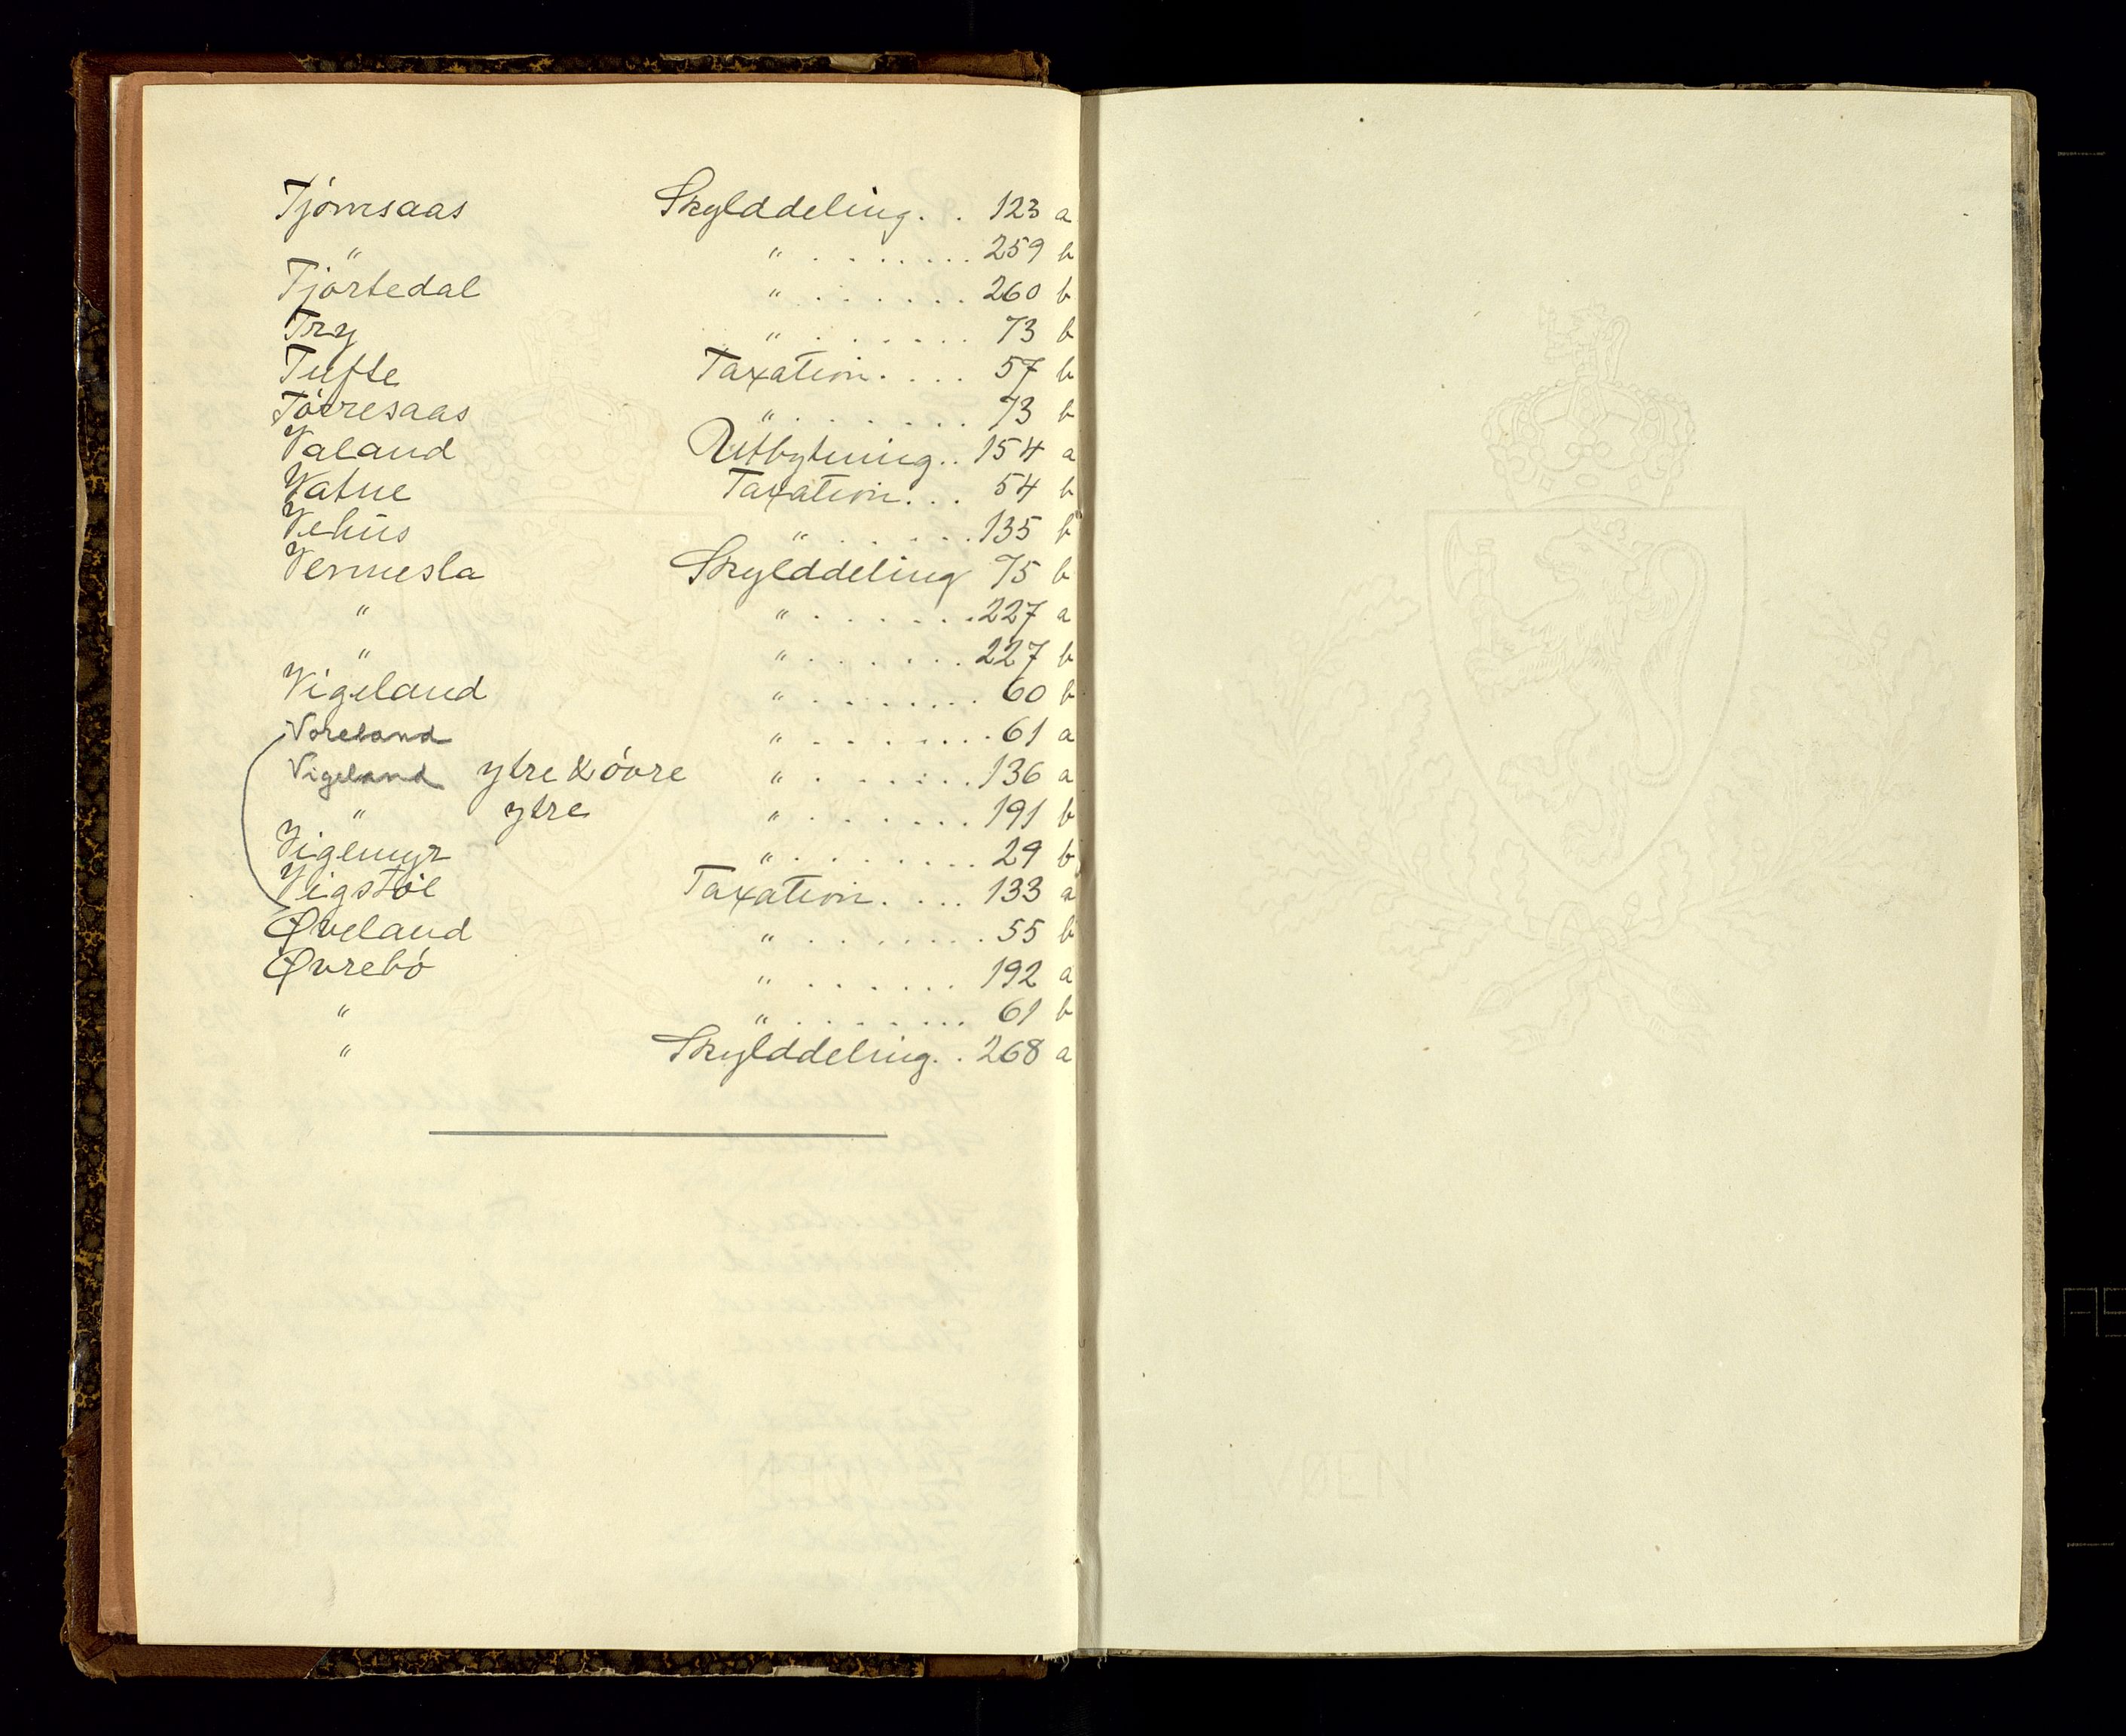 Tjómsaas Skylddeling. . 123 a
" " . . . . . . . . 259 b
Tjórtedal " . . . . . . . 260 b
Try " . . . . . . . 73 b
Tufte Taxation. . . . 57 b
Tóvresaas " . . . . . . . 73 b
Valand Utbytning. . 154 a
Vatne Taxation. . . 54 b
Vehus " . . . . . . 135 b
Vennesla Skylddeling 75 b
" " . . . . . . . 227 a
" " . . . . . . . 227 b
Vigeland " . . . . . . . . . 60 b
Voreland " . . . . . . . . 61 a
Vigeland ytre & óvre " . . . . . . . 136 a
" ytre " . . . . . . . 191 b
Vigemyr " . . . . . . . . . 29 b
Vigstöl Taxation. . . . 133 a
Øveland " . . . . . . . . 55 b
Øvrebó " . . . . . . . 192 a
" " . . . . . . . . 61 b
" Skylddeling. . 268 a
ALVØEN